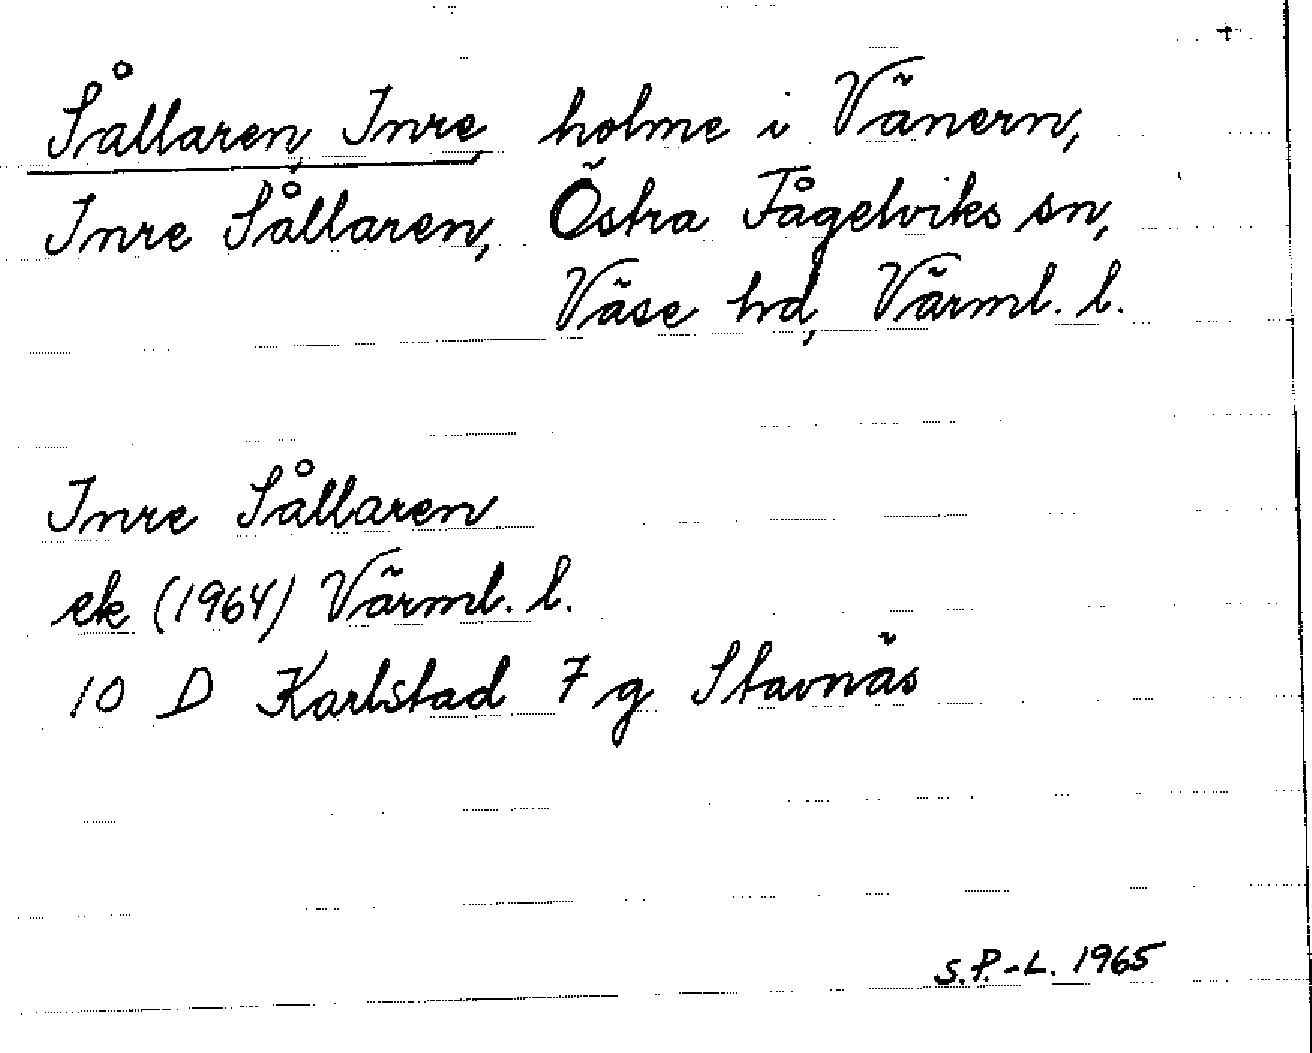 Sållaren, Inre, holme i Vänern,
Inre Sållaren, Östra Fågelviks sn,
Väse hd, Värml. l.
Inre Sållaren
ek (1964) Värml. l.
10 D Karlstad 7 g Stavnäs
S.P.-L. 1965